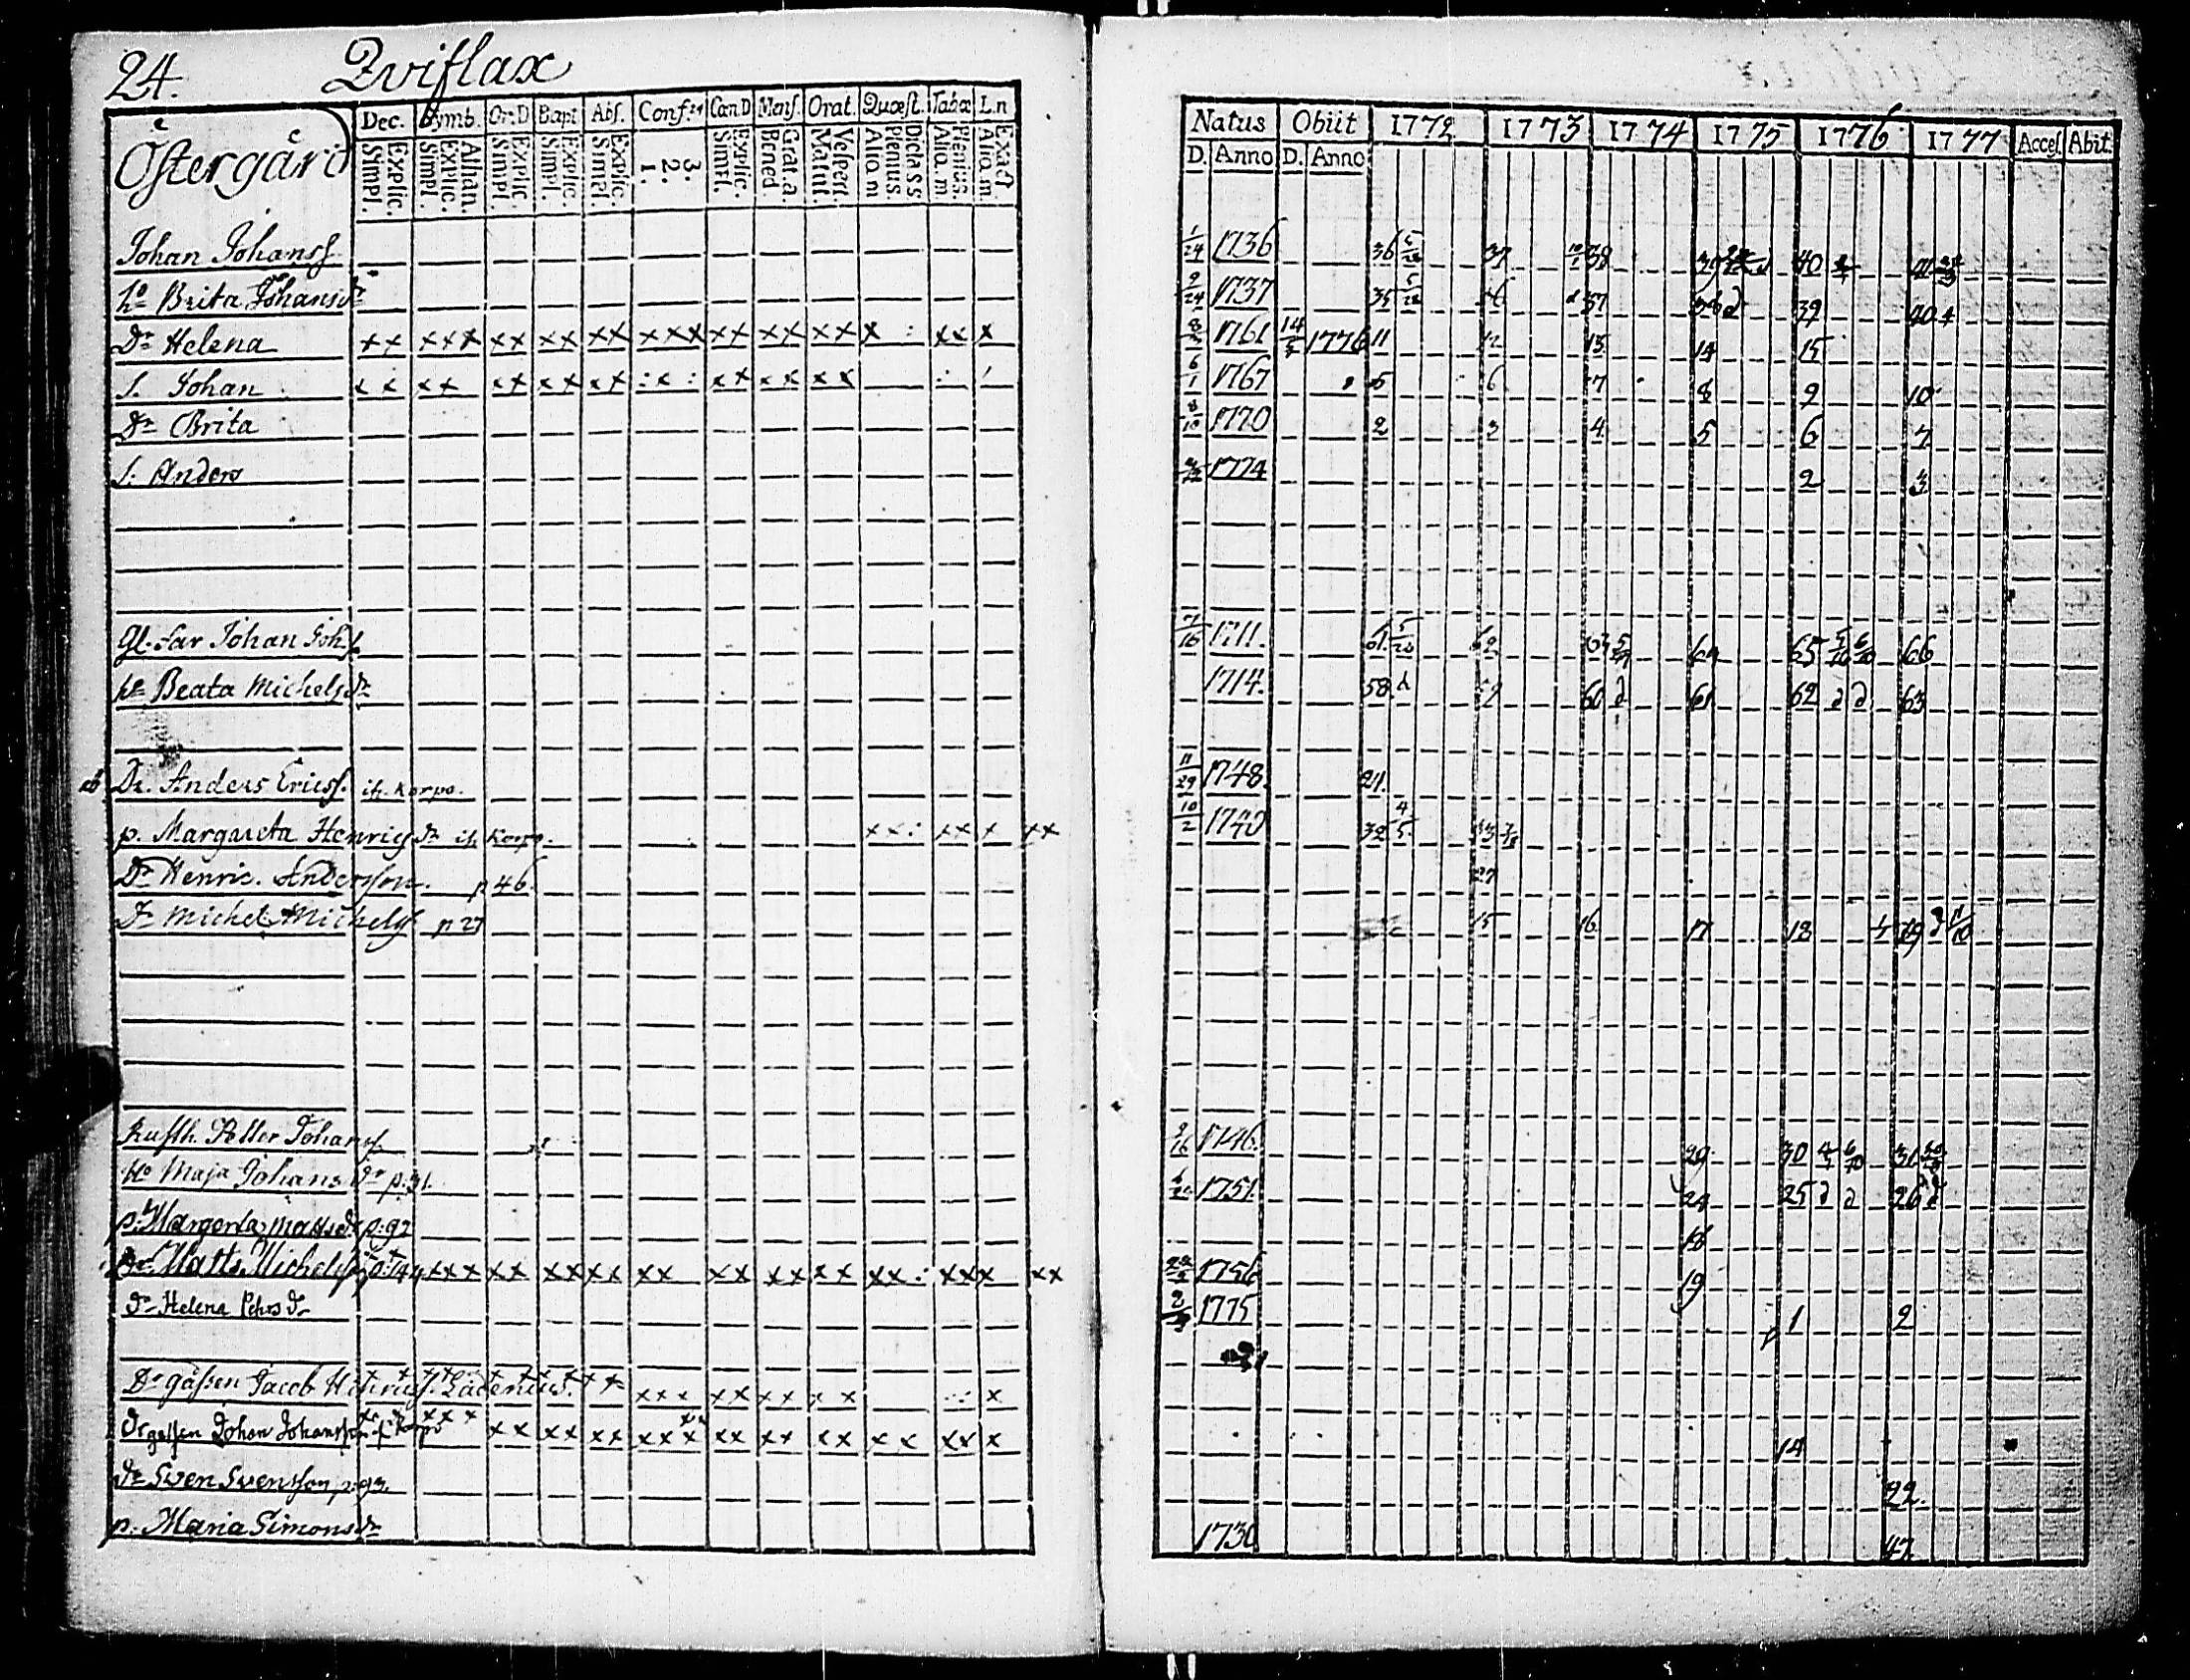 24. Qviflax
Östergård Dec. Symb. Or.D Bapt Abs. Conf. Can.D Mens. Orat. Quæst. Tabæ L.n
Simpl. Explic. Simpl. Explic. Athan. Simpl. Explic. Simpl. Explic. Simpl. Explic. 1. 2. 3. Simpl. Explic. Bened. Grat.a. Matut. Vespert. Aliq m Plenius. Dicta s s Aliq. m. Plenius. Aliq. m. Exact
Natus Obiit 1772 1773 1774 1775 1776 1777 Acces. Abit.
D. Anno D. Anno
Johan Johanss 1/24 1736 36 5/28 37 38 39 40 41
ho Brita Johansdr 9/24 1737 35 5/28 36 37 39 40
Dr Helena xx xxx xx xx xx xxx xx xx xx x : xx x 1761 14 1776 11 12 13 14 15
S. Johan xx xx xx xx xx :x: xx xx xx 6/1 1767 5 6 7 8 9 10
Dr Brita 8/10 1770 2 3 4 5 6 7
S. Anders 1774 2 3
Gl. far Johan Johss 7/16 1711. 61. 5/28 62 63 64 65 66
ho Beata Michelsdr 1714. 58. d 59 60 d 61 62 d d 63
Dr. Anders Ericss. if. Korpo. 11/29 1748. 24.
p. Margareta Henrigsdr if Korpo. xx: xx x xx 10/2 1740 32 4/5. 33
Dr Henric. Andersson. p 46. 27
Dr Michel Michelss p 27 15 16 17 18 19 11/10
Rusth. Petter Johanss 9/16 1746. 29 30 31
ho Maja Johansdr p. 31. 1751. 24 25 d d 26 d
p. Margerta Mattsdr p. 92 18
Dr Matts Michelss p. 144 xxx xx xx xx xx xx xx xx xx: xxx xx 1756 19
dr Helena Pehrsdr 1775 1 2
Dr gåssen Jacob Ladenius. xx xxx xx xx xx x
Dr gåssen Johan Johansson if Korpo xxx xx xx xx xxx xx xx xx xx xx x 14
dr Sven Svensson, p. 93. 22.
p. Maria Simonsdr 1730 47.